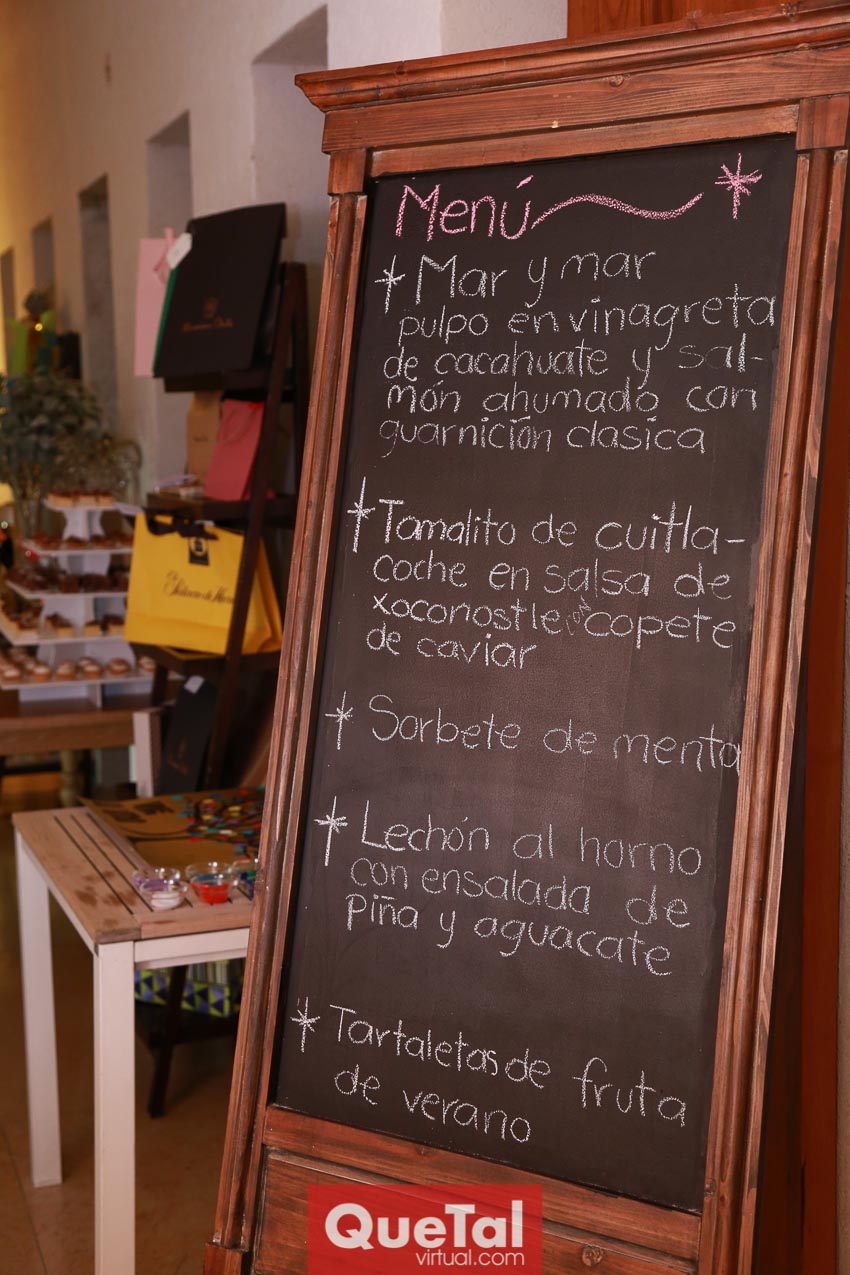 Menú
Mar y mar
pulpo en vinagreta
de cacahuate y sal-
món ahumado con
guarnición clasica
Tamalito de cuitla-
coche en salsa de
xoconostle con copete
de caviar
Sorbete de menta
Lechón al horno
con ensalada de
piña y aguacate
Tartaletas de fruta
de verano
QueTal
virtual.com